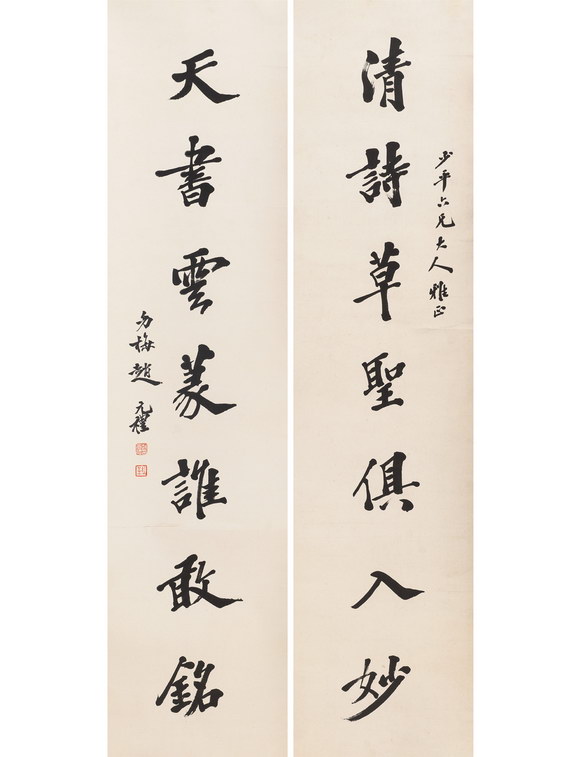 少平六兄大人雅正
清詩草聖俱入妙
天書雲篆誰敢銘
幼梅趙元禮